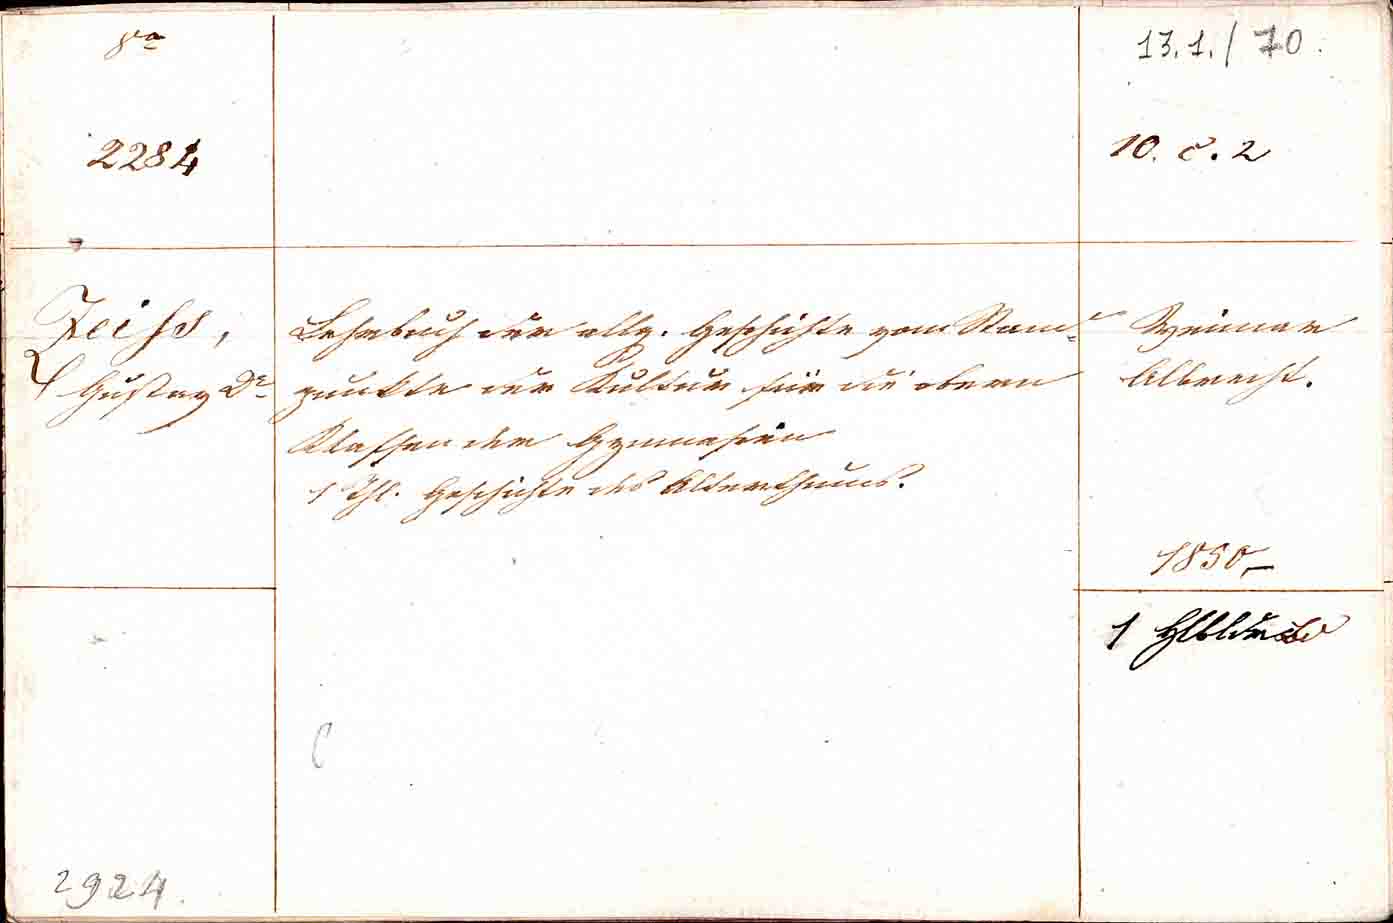 8°
2284
13.1./70.
10. c. 2
Zeiss,
Gustav Dr
Lehrbuch der allg. Geschichte vom Stand-
punkte der Kultur für die obern
Klassen der Gymnasien
1 Thl. Geschichte des Alterthums.
Weimar
Albrecht.
1850,–
1 Hlbldrbd
C
2924.